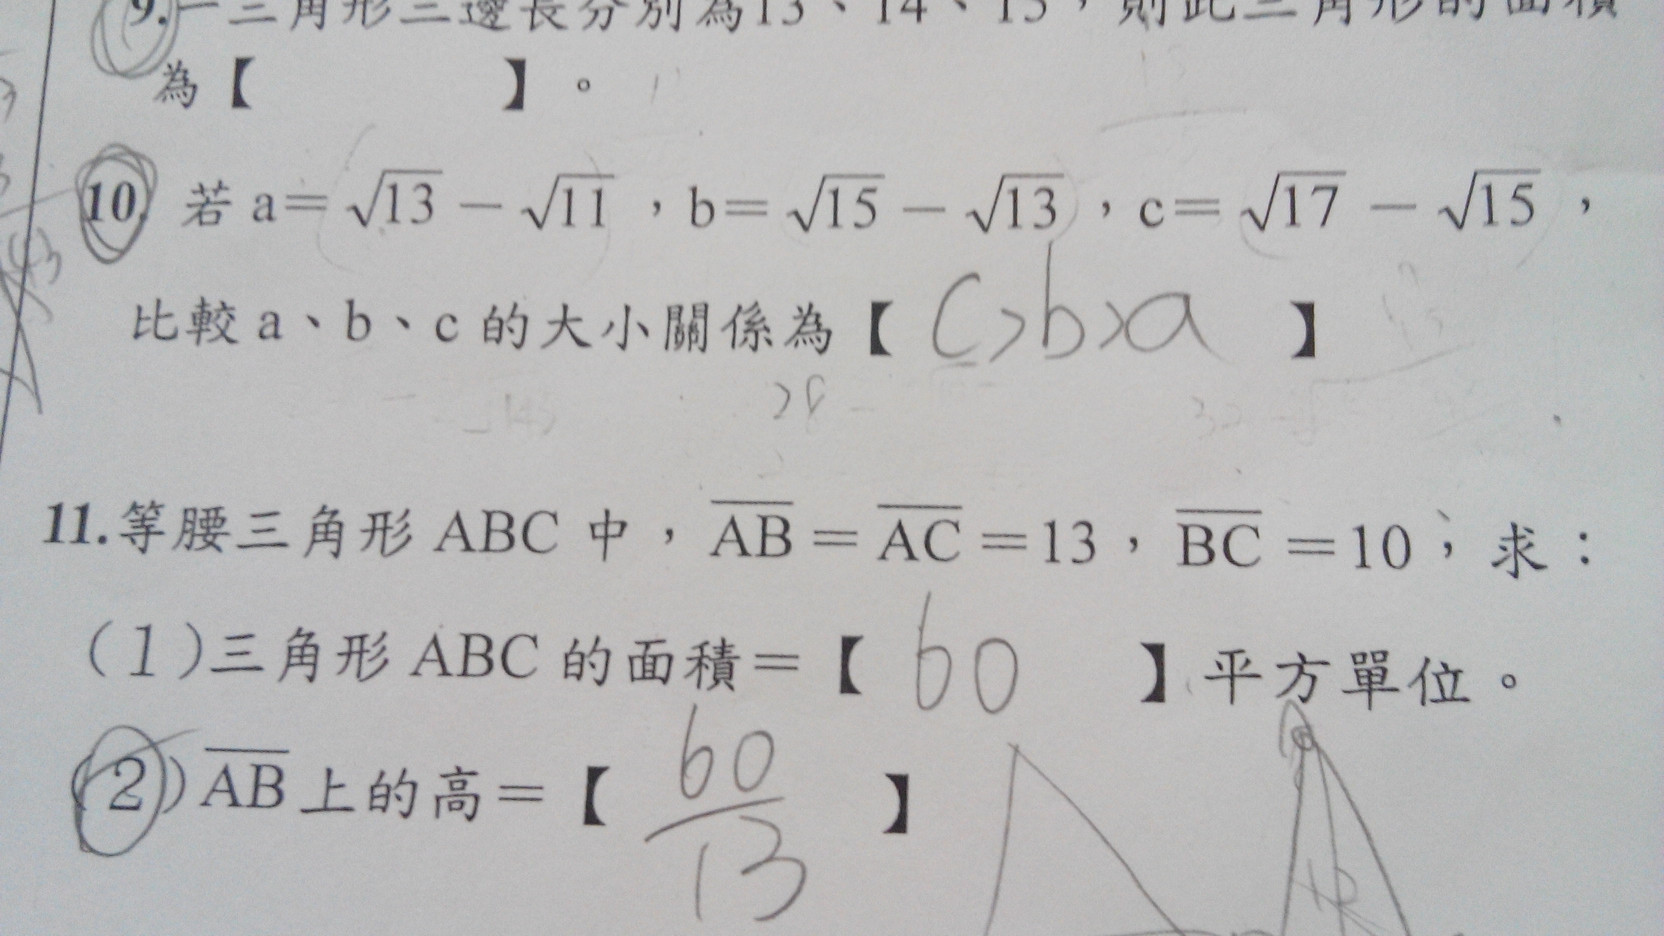 9.一三角形三邊長分別為13、14、15，則此三角形的面積
為【　　】。
10. 若 a=√13－√11，b=√15－√13，c=√17－√15，
比較 a、b、c 的大小關係為【 c>b>a 】
11.等腰三角形 ABC 中，AB=AC=13，BC=10，求：
(1)三角形 ABC 的面積=【 60 】平方單位。
(2)AB上的高=【 60/13 】